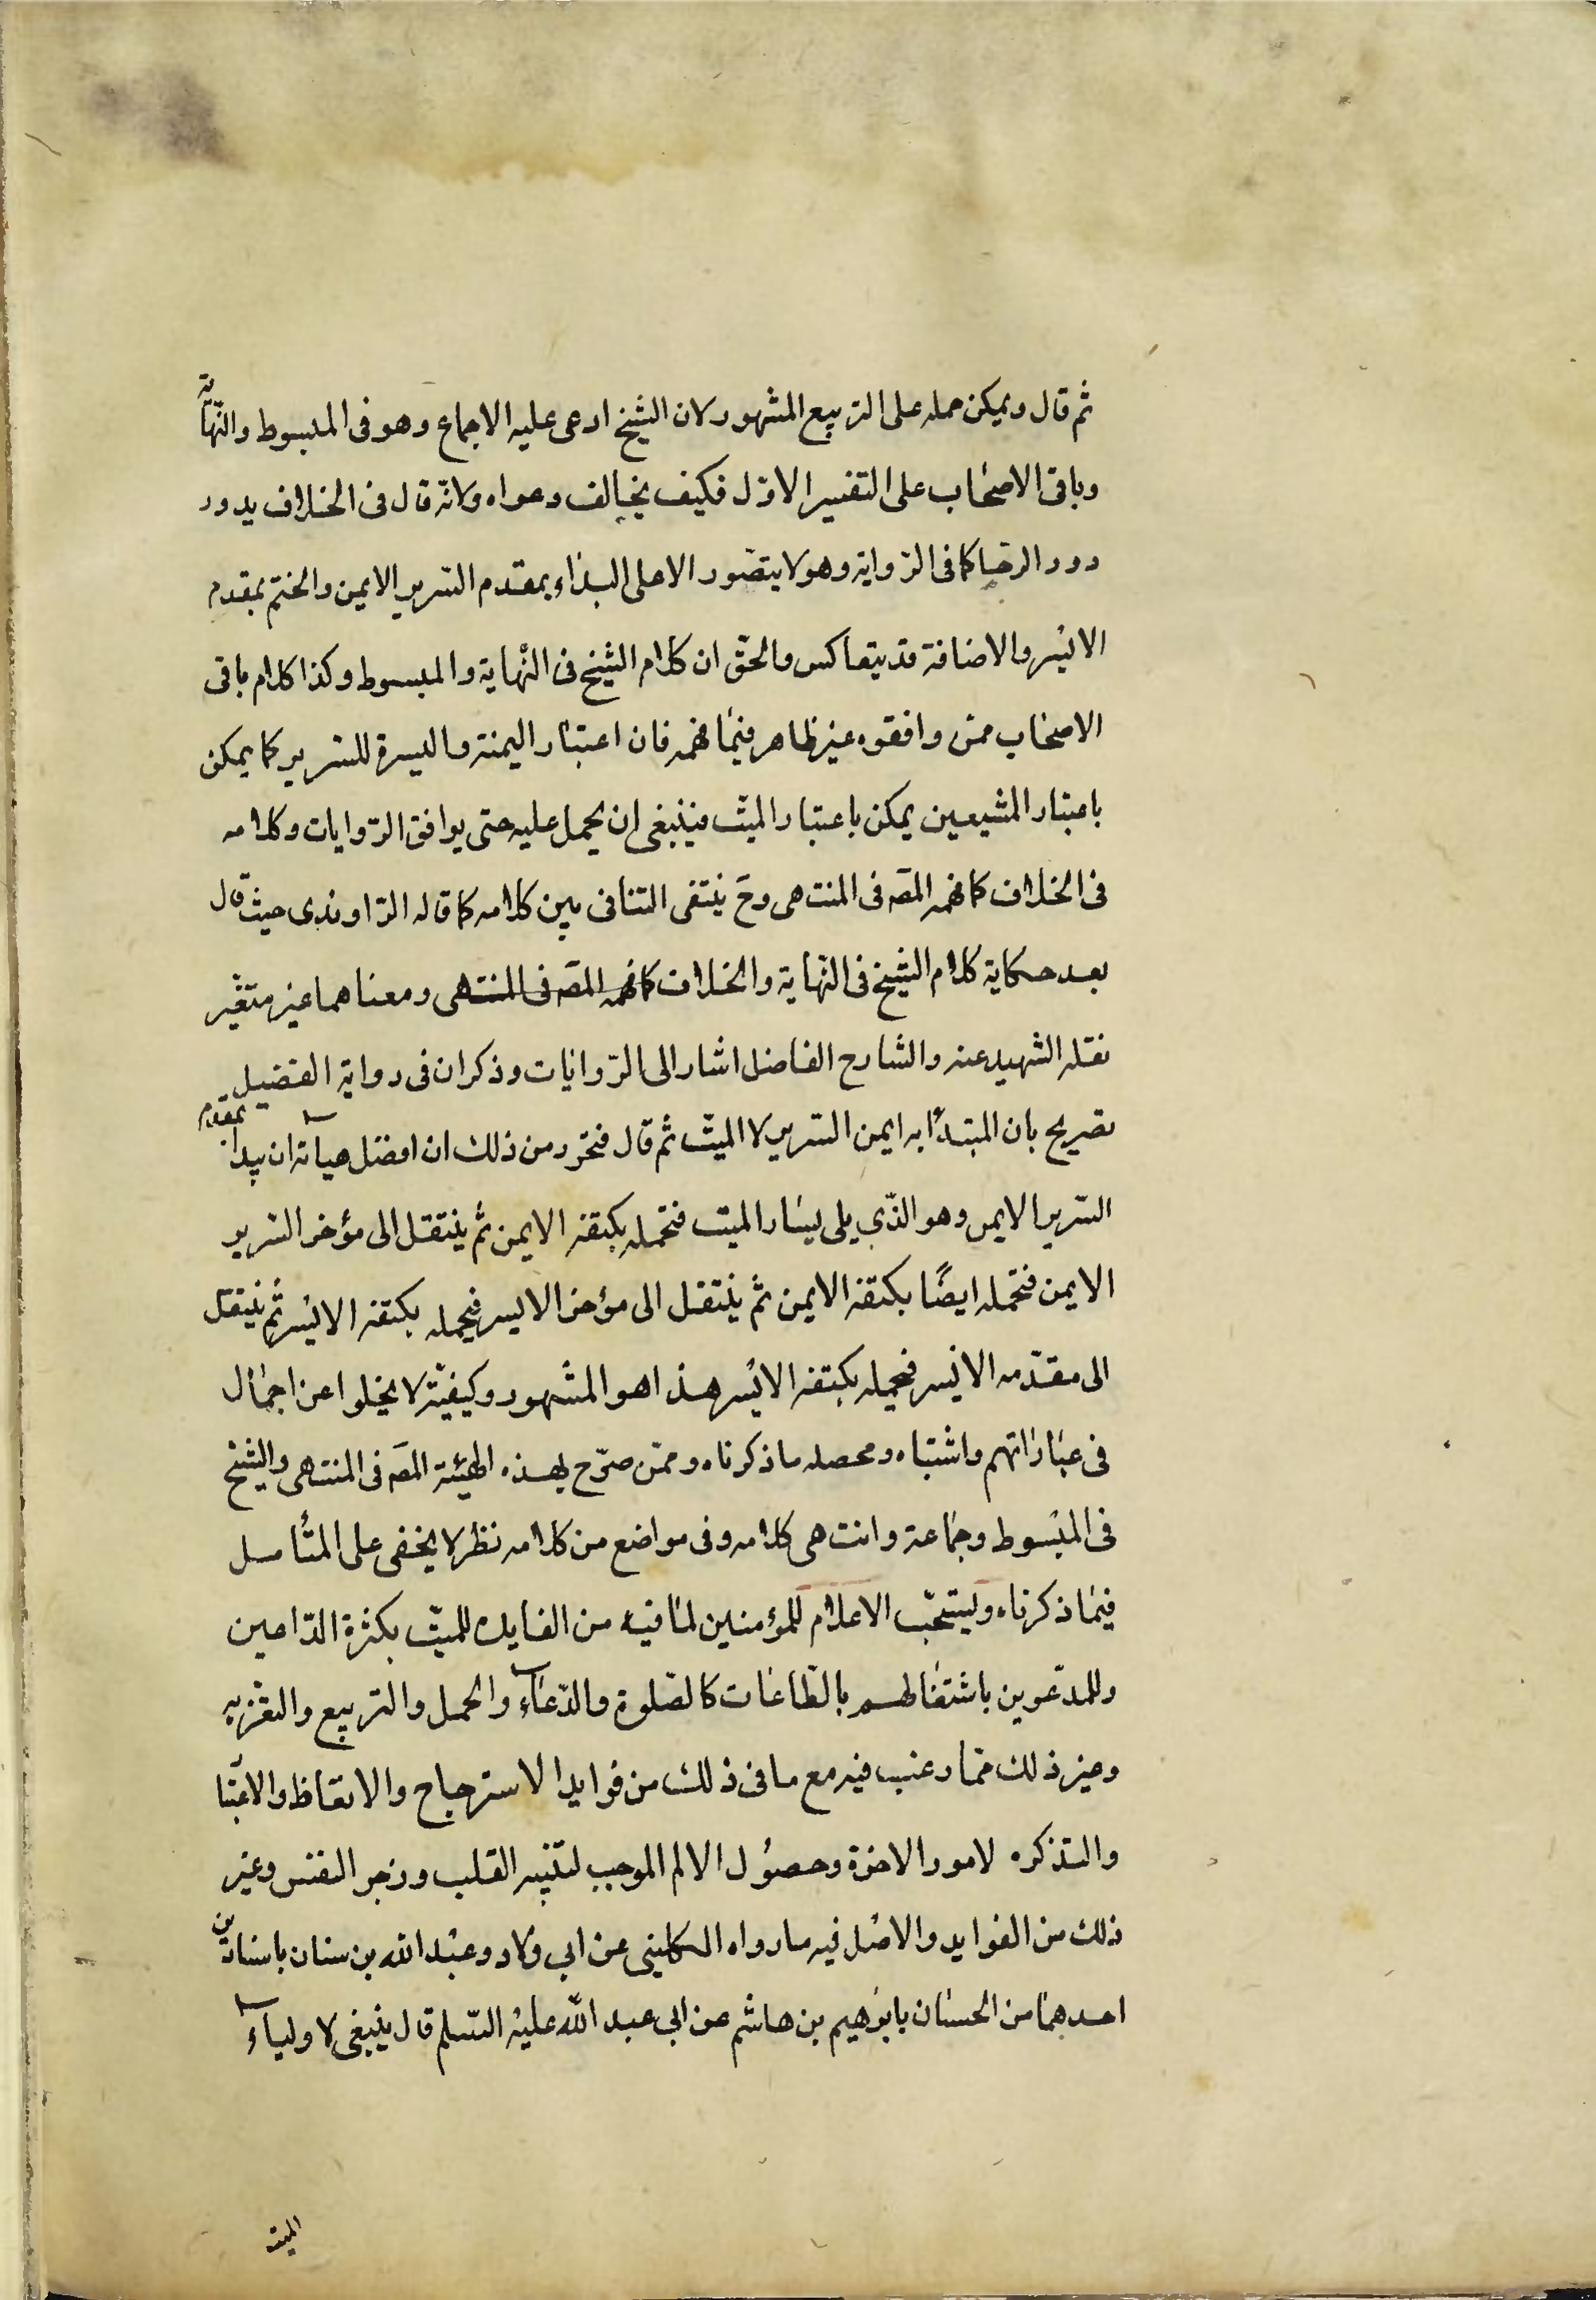 ثم قال ويمكن حمله على التربيع المشهور لان الشيخ ادعى عليه الاجماع وهو فى المبسوط والنهاية
وباقى الاصحاب على التفسير الاول فكيف يخالف دعواه ولانه قال فى الخلاف يدور
دور الرحا كما فى الرواية وهو لا يتصور الا على البداء بمقدم السرير الايمن والختم بمقدم
الايسر والاضافة قد يتعاكس والحق ان كلام الشيخ فى النهاية والمبسوط وكذا كلام باقى
الاصحاب ممن وافقوه غير ظاهر فيما فهمه فان اعتبار اليمنة واليسرة للسرير كما يمكن
باعتبار المشيعين يمكن باعتبار الميت فينبغى ان يحمل عليه حتى يوافق الروايات وكلامه
فى الخلاف كما فهمه المصه فى المنتهى وح ينتفى التنافى بين كلامه كما قاله الراوندى حيث قال
بعد حكاية كلام الشيخ فى النهاية والخلاف كما فهمه المصه فى المنتهى ومعناهما غير متغير
نقله الشهيد عنه والشارح الفاضل اشار الى الروايات وذكر ان فى رواية الفضيل
تصريح بان المبتدأ به ايمن السرير لا الميت ثم قال فتحرر من ذلك ان افضل هياته ان يبدأ بمقدم
السرير الايمن وهو الذي يلى يسار الميت فتحمله بكتفه الايمن ثم ينتقل الى مؤخر السرير
الايمن فتحمله ايضًا بكتفه الايمن ثم ينتقل الى مؤخر الايسر فيحمله بكتفه الايسر ثم ينتقل
الى مقدمه الايسر فيحمله بكتفه الايسر هذا هو المشهور وكيفيته لا يخلوا عن اجمال
فى عباراتهم واشتباه ومحصله ما ذكرناه وممن صرح بهذه الهيئة المصه فى المنتهى والشيخ
فى المبسوط وجماعة وانتهى كلامه وفى مواضع من كلامه نظر لا يخفى على المتأمل
فيما ذكرناه ويستحب الاعلام للمؤمنين لما فيه من الفايده للميت بكثرة الداعين
وللمدعوين باشتغالهم بالطاعات كالصلوة والدعاء والحمل والتربيع والتعزيه
وغير ذلك مما رغب فيه مع ما فى ذلك من فوايد الاسترجاح والاتعاظ والاعتبا
والتذكره لامور الاخرة وحصول الالم الموجب لتنبيه القلب وزجر النفس وغير
ذلك من الفوايد والاصل فيه ما رواه الكلينى عن ابي ولاد وعبد الله بن سنان باسنادين
احدهما من الحسان بابرهيم بن هاشم عن ابي عبد الله عليه السلم قال ينبغى لاولياء
الميت